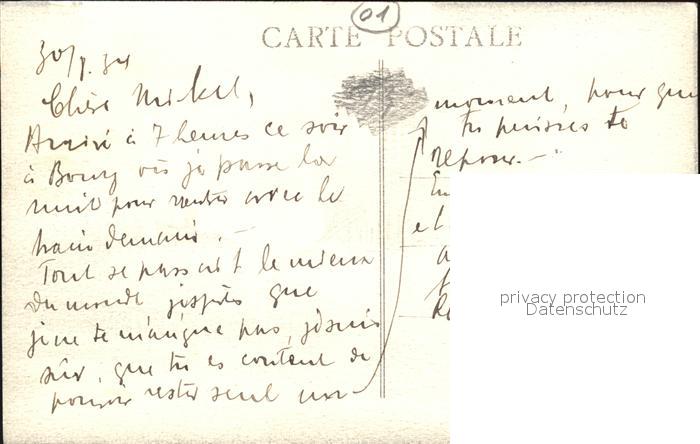 01
CARTE POSTALE
30/7.34
Chère
Arrivé à 7 heures ce soir
à Bourg où je passe la
nuit pour rentrer avec le
train demain. —
Tout se passait le mieux
du monde, j'espère que
je ne te manque pas, je suis
sûr, que tu es content de
pouvoir rester seul un
moment, pour que
tu puisses te
reposer. —
En
et
privacy protection
Datenschutz